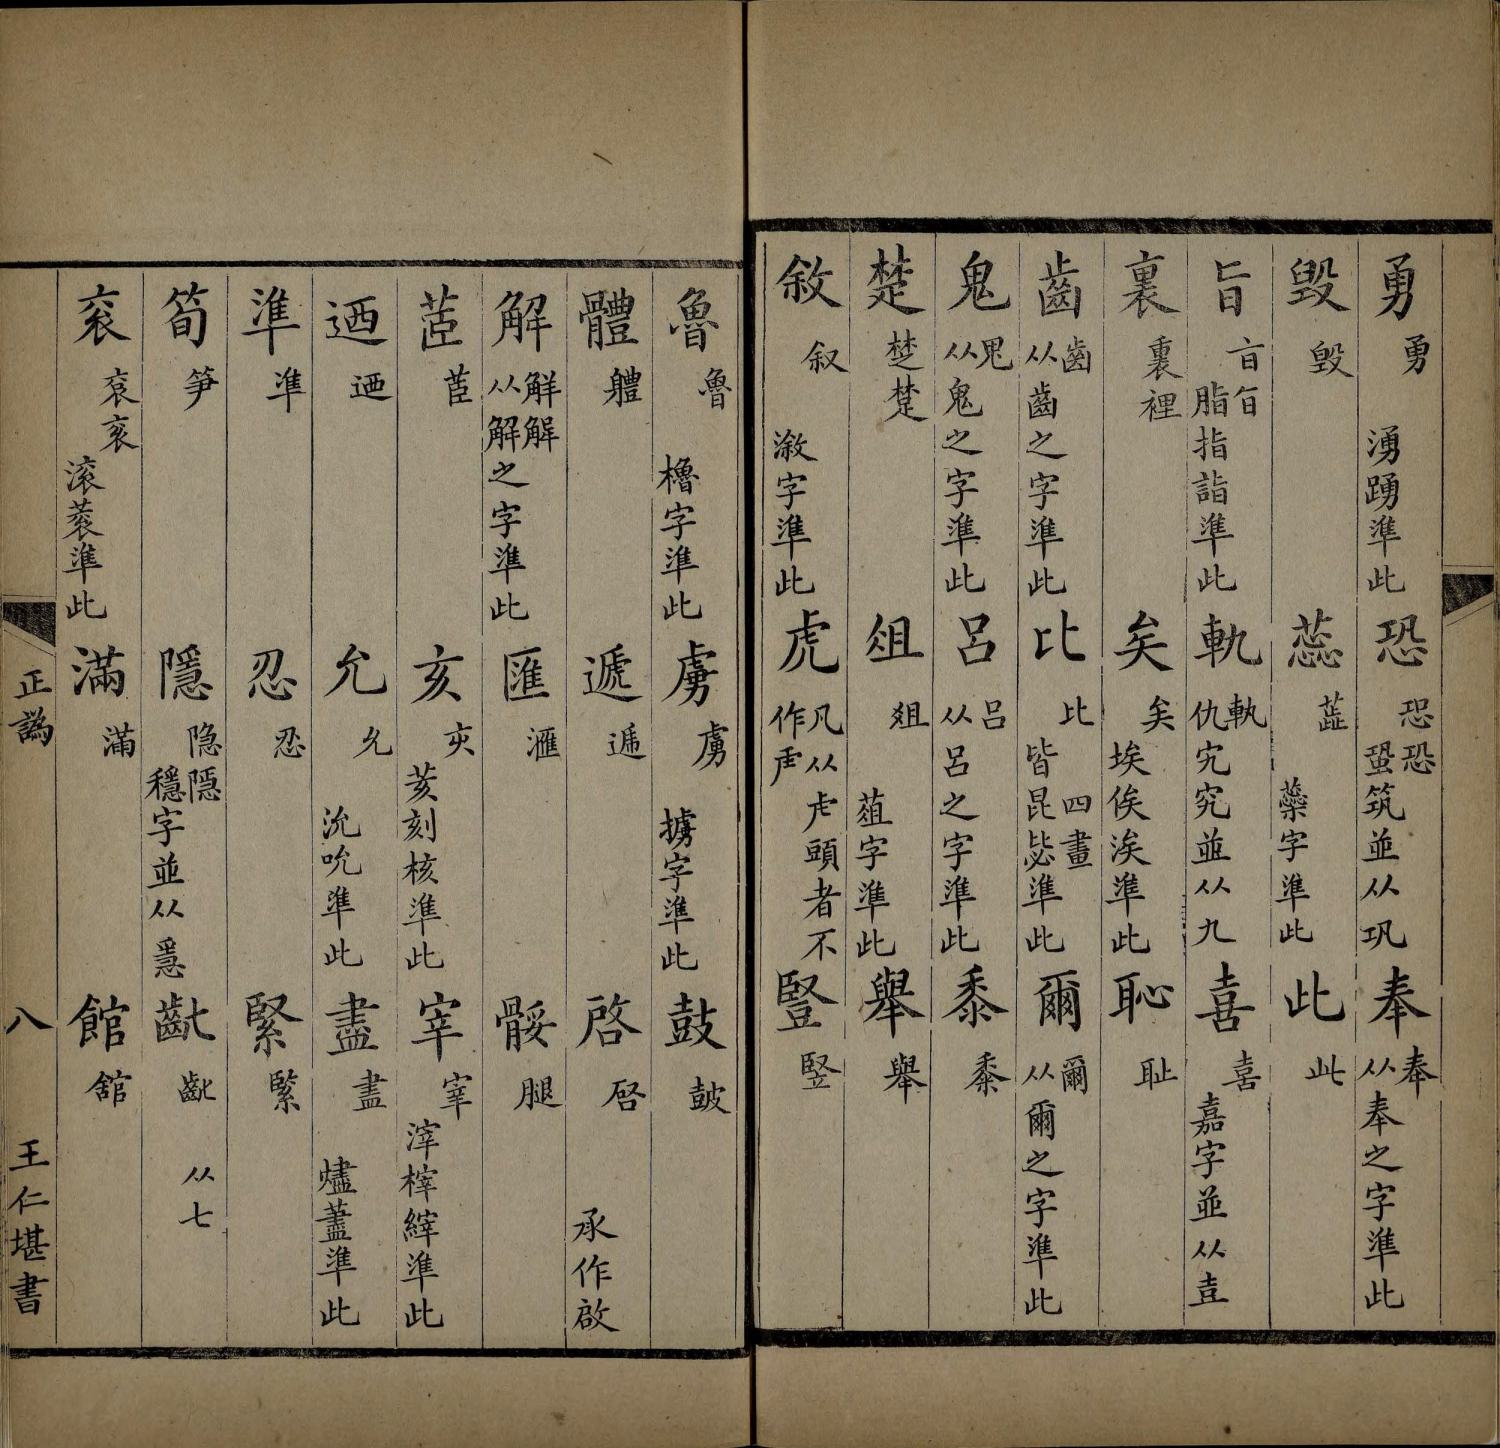 勇 勇 湧踴準此 恐 恐恐 蛩筑並从巩 奉 奉 从奉之字準此
毁 毀 蕊 蘂字準此 此 此
旨 脂指詣準此 軌 軌 仇宄究並从九 喜 喜 嘉字並从壴
裏 裏裡 矣 矣 埃俟涘準此 恥 耻
齒 齒 从齒之字準此 比 比 四畫 皆昆毖準此 爾 爾 从爾之字準此
鬼 鬼 从鬼之字準此 呂 吕 从呂之字準此 黍 黍
楚 椘楚 俎 爼 葅字準此 舉 舉
敘 叙 漵字準此 虎 凡从虍頭者不作 豎 竪
魯 魯 櫓字準此 虜 虜 擄字準此 鼓 皷
體 軆 遞 逓 啓 啟 承作啟
解 觧 从解之字準此 匯 滙 骽 腿
茝 茝 亥 亥 荄刻核準此 宰 宰 滓榟縡準此
迺 廼 允 允 沇吮準此 盡 盡 燼藎準此
準 凖 忍 忍 緊 緊
筍 笋 隱 隐隱 穩字並从㥯 齔 齔 从七
袞 衮 滚蓘準此 滿 滿 館 舘
正譌 八 王仁堪書